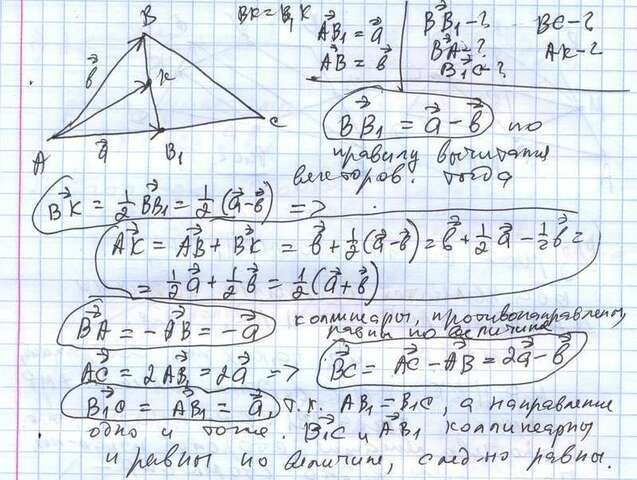 BK = B₁K
AB₁→ = a→
AB→ = b→
BB₁→ - ?
BA→ - ?
B₁C→ - ?
BC - ?
AK - ?
B
b→
K
C
A
a→
B₁
BB₁→ = a→ - b→ по
правилу вычитания
векторов. Тогда
BK→ = 1/2 BB₁→ = 1/2 (a→ - b→) =>
AK→ = AB→ + BK→ = b→ + 1/2 (a→ - b→) = b→ + 1/2 a→ - 1/2 b→ =
= 1/2 a→ + 1/2 b→ = 1/2 (a→ + b→)
BA→ = - AB→ = - a→ коллинеары, противонаправлены,
равны по величине
AC→ = 2AB₁→ = 2a→ => BC→ = AC→ - AB→ = 2a→ - b→
B₁C→ = AB₁→ = a→, т.к. AB₁ = B₁C, а направление
одно и тоже. B₁C→ и AB₁→ коллинеарны
и равны по величине, след-но равны.